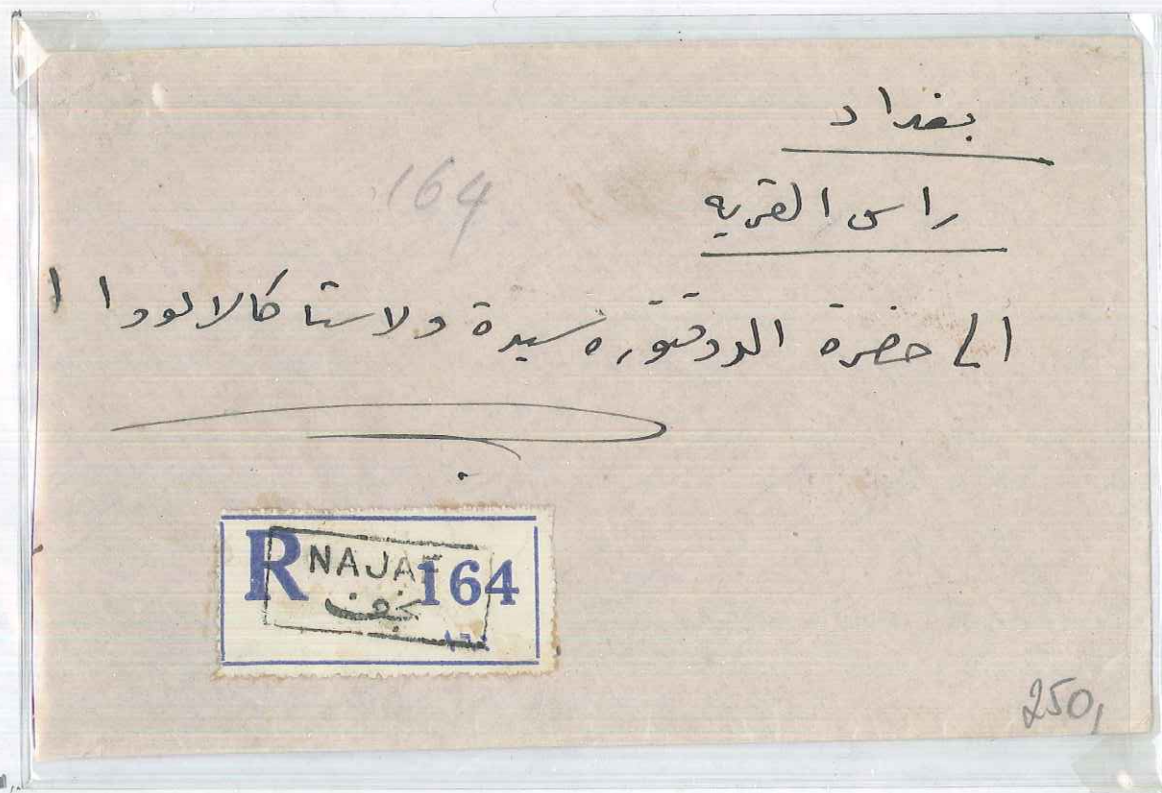 بغداد
164
راس القريه
الى حضرة الدوقتوره سيدة ولاستا كالالووا
R NAJAF 164
نجف
250,